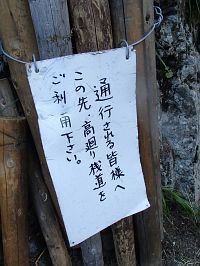 通行される皆様へ
この先、高廻り桟道を
ご利用下さい。